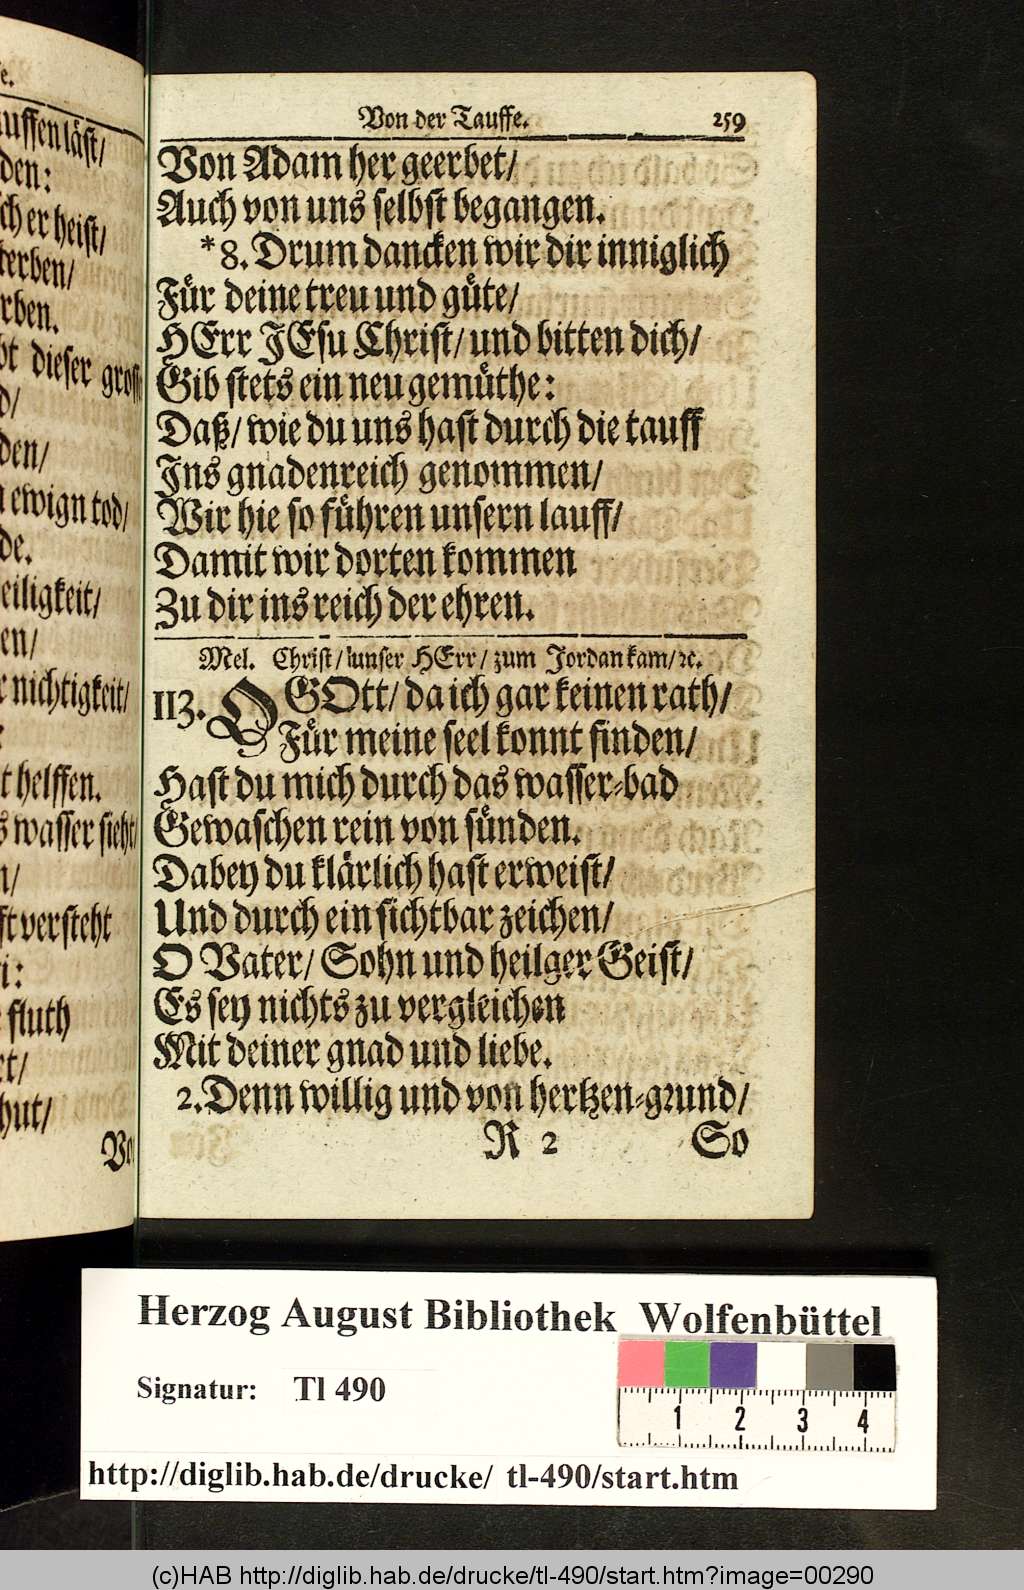 Von der Tauffe. 259
Von Adam her geerbet/
Auch von uns selbst begangen.
*8. Drum dancken wir dir inniglich
Für deine treu und güte/
HErr JEsu Christ/ und bitten dich/
Gib stets ein neu gemüthe:
Daß/ wie du uns hast durch die tauff
Ins gnadenreich genommen/
Wir hie so führen unsern lauff/
Damit wir dorten kommen
Zu dir ins reich der ehren.
Mel. Christ/ unser HErr/ zum Jordan kam/ ꝛc.
113. O GOtt/ da ich gar keinen rath/
Für meine seel konnt finden/
Hast du mich durch das wasser-bad
Gewaschen rein von sünden.
Dabey du klärlich hast erweist/
Und durch ein sichtbar zeichen/
O Vater/ Sohn und heilger Geist/
Es sey nichts zu vergleichen
Mit deiner gnad und liebe.
2. Denn willig und von hertzen-grund/
R 2 So
e.
auffen läst/
den:
ch er heist/
terben/
rben.
bt dieser gross
d/
den/
ewign tod/
de.
eiligkeit/
en/
r nichtigkeit/
t helffen.
s wasser sieht/
n/
ft versteht
i:
fluth
et/
hut/
Vo
Herzog August Bibliothek Wolfenbüttel
Signatur: Tl 490
1 2 3 4
http://diglib.hab.de/drucke/ tl-490/start.htm
(c)HAB http://diglib.hab.de/drucke/tl-490/start.htm?image=00290